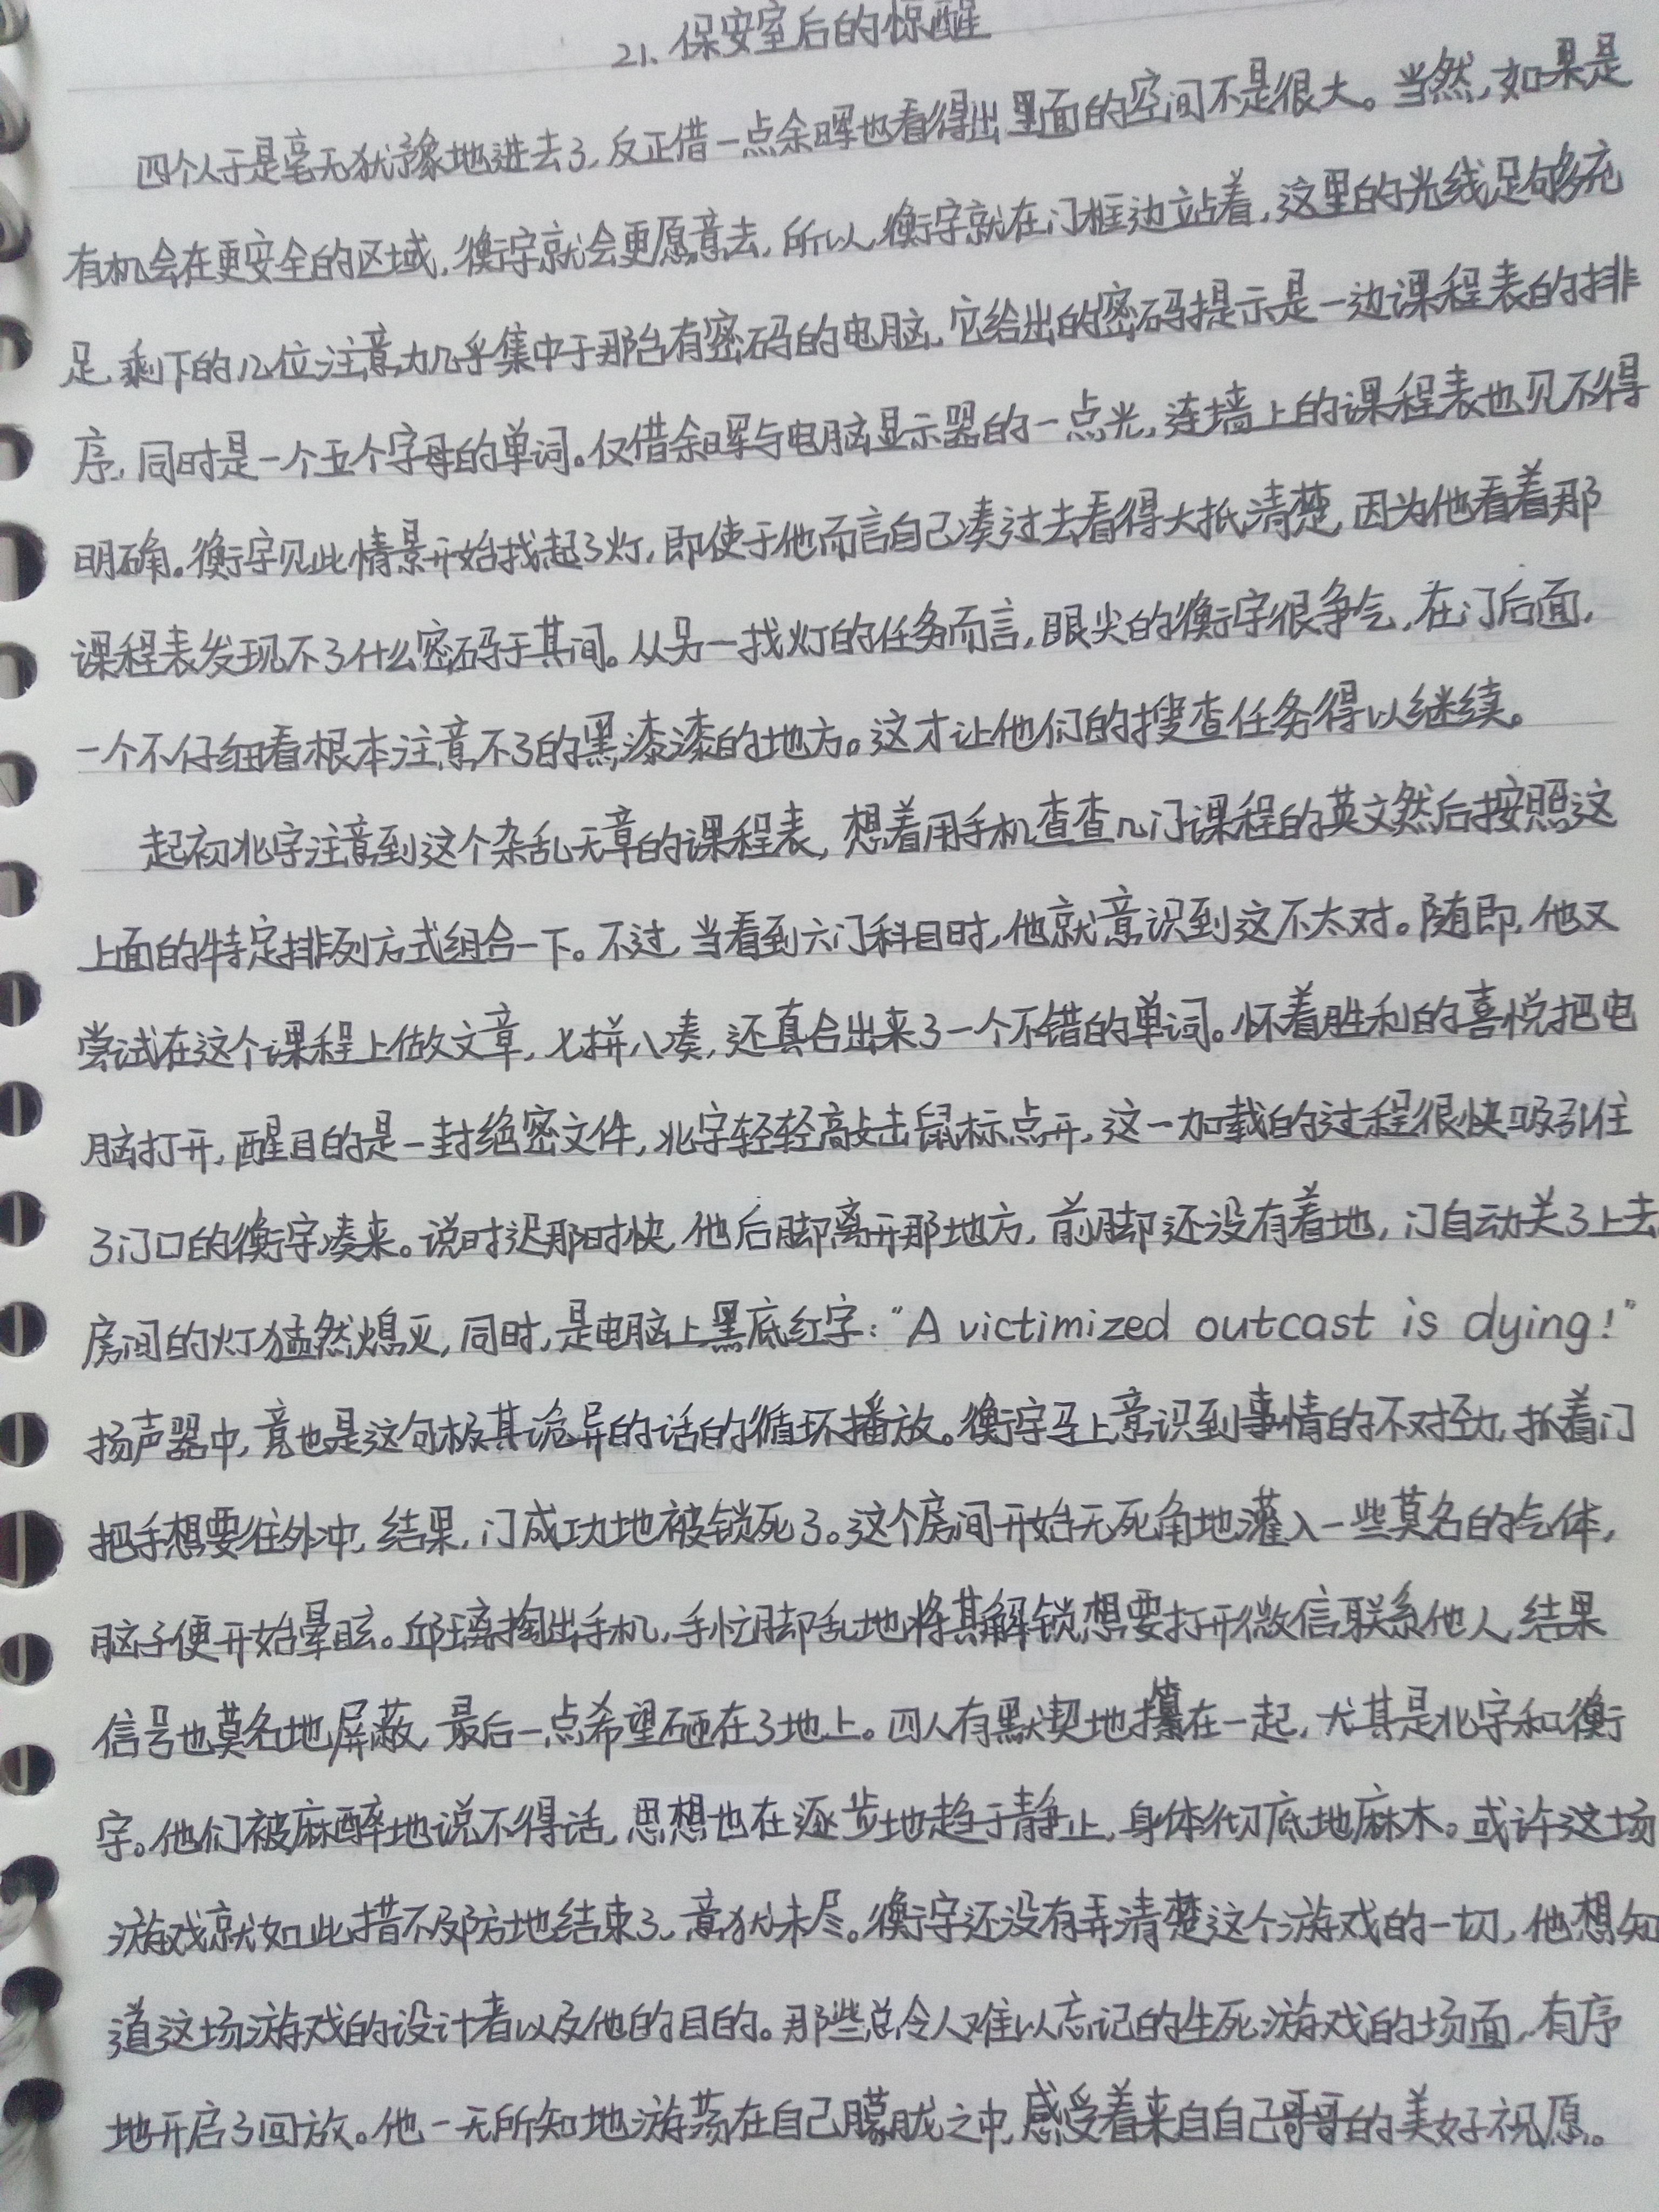 21、保安室后的惊醒
四个人于是毫无犹豫地进去了,反正借一点余晖也看得出里面的空间不是很大。当然,如果是
有机会在更安全的区域,衡宇就会更愿意去,所以,衡宇就在门框边站着,这里的光线足够充
足,剩下的几位注意力几乎集中于那台有密码的电脑,它给出的密码提示是一边课程表的排
序,同时是一个五个字母的单词。仅借余晖与电脑显示器的一点光,连墙上的课程表也见不得
明确。衡宇见此情景开始找起了灯,即使于他而言自己凑过去看得大抵清楚,因为他看着那
课程表发现不了什么密码于其间。从另一找灯的任务而言,眼尖的衡宇很争气,在门后面,
一个不仔细看根本注意不了的黑漆漆的地方。这才让他们的搜查任务得以继续。
起初北宇注意到这个杂乱无章的课程表,想着用手机查查几门课程的英文然后按照这
上面的特定排列方式组合一下。不过,当看到六门科目时,他就意识到这不太对。随即,他又
尝试在这个课程上做文章,七拼八凑,还真合出来了一个不错的单词。怀着胜利的喜悦把电
脑打开,醒目的是一封绝密文件,北宇轻轻敲击鼠标点开,这一加载的过程很快吸引住
了门口的衡宇凑来。说时迟那时快,他后脚离开那地方,前脚还没有着地,门自动关了上去,
房间的灯猛然熄灭,同时,是电脑上黑底红字:“A victimized outcast is dying!”
扬声器中,竟也是这句极其诡异的话的循环播放。衡宇马上意识到事情的不对劲,抓着门
把手想要往外冲,结果,门成功地被锁死了。这个房间开始无死角地灌入一些莫名的气体,
脑子便开始晕眩。邱璃掏出手机,手忙脚乱地将其解锁想要打开微信联系他人,结果
信号也莫名地屏蔽,最后一点希望砸在了地上。四人有默契地攥在一起,尤其是北宇和衡
宇。他们被麻醉地说不得话,思想也在逐步地趋于静止,身体彻底地麻木。或许这场
游戏就如此措不及防地结束了,意犹未尽。衡宇还没有弄清楚这个游戏的一切,他想知
道这场游戏的设计者以及他的目的。那些总令人难以忘记的生死游戏的场面,有序
地开启了回放。他一无所知地游荡在自己朦胧之中,感受着来自自己哥哥的美好祝愿。